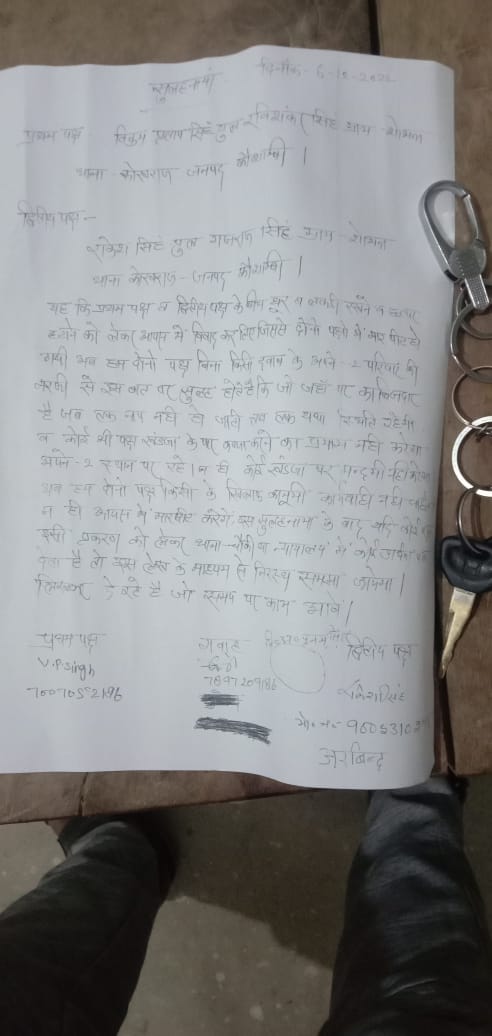 सुलहनामा दिनाँक - 6-10-2022
प्रथम पक्ष - विक्रम प्रताप सिंह पुत्र रविशंकर सिंह ग्राम -
थाना - कोखराज जनपद कौशाम्बी |
द्वितीय पक्ष -
राकेश सिंह पुत्र गजराज सिंह ग्राम -
थाना कोखराज - जनपद कौशाम्बी |
यह कि प्रथम पक्ष व द्वितीय पक्ष के बीच घूर व लकडी रखने व
हटाने को लेकर आपस में विवाद कर लिए जिससे दोनो पक्षो में मार पीट हो
गयी अब हम दोनो पक्ष बिना किसी दबाव के अपने -2 परिवार की
मरजी से इस बात पर सुलह हो रहे है कि जो जहाँ पर काबिजदार
है जब तक नाप नही हो जाती तब तक यथा स्थिति रहेगा
व कोई भी पक्ष खडंजा के पर कब्जा करने का प्रयास नही करेगा
अपने -2 स्थान पर रहे | न ही कोई खडंजा पर गन्दगी नही करेगा
अब हम दोनो पक्ष किसी के खिलाफ कानूनी कार्यवाही नही चाहते
न ही आपस में मारपीट करेगे, इस सुलहनामा के बाद यदि कोई
इसी प्रकरण को लेकर थाना - चौकी या न्यायालय में कोई
देता है तो इस लेख के माध्यम से निरस्त समझा जायेगा |
लिखकर दे रहे है जो समय पर काम आवे |
प्रथम पक्ष गवाह द्वितीय पक्ष
V.P singh राकेश सिंह
7007052196 7897209186
मो० न० - 9605310
अरबिन्द